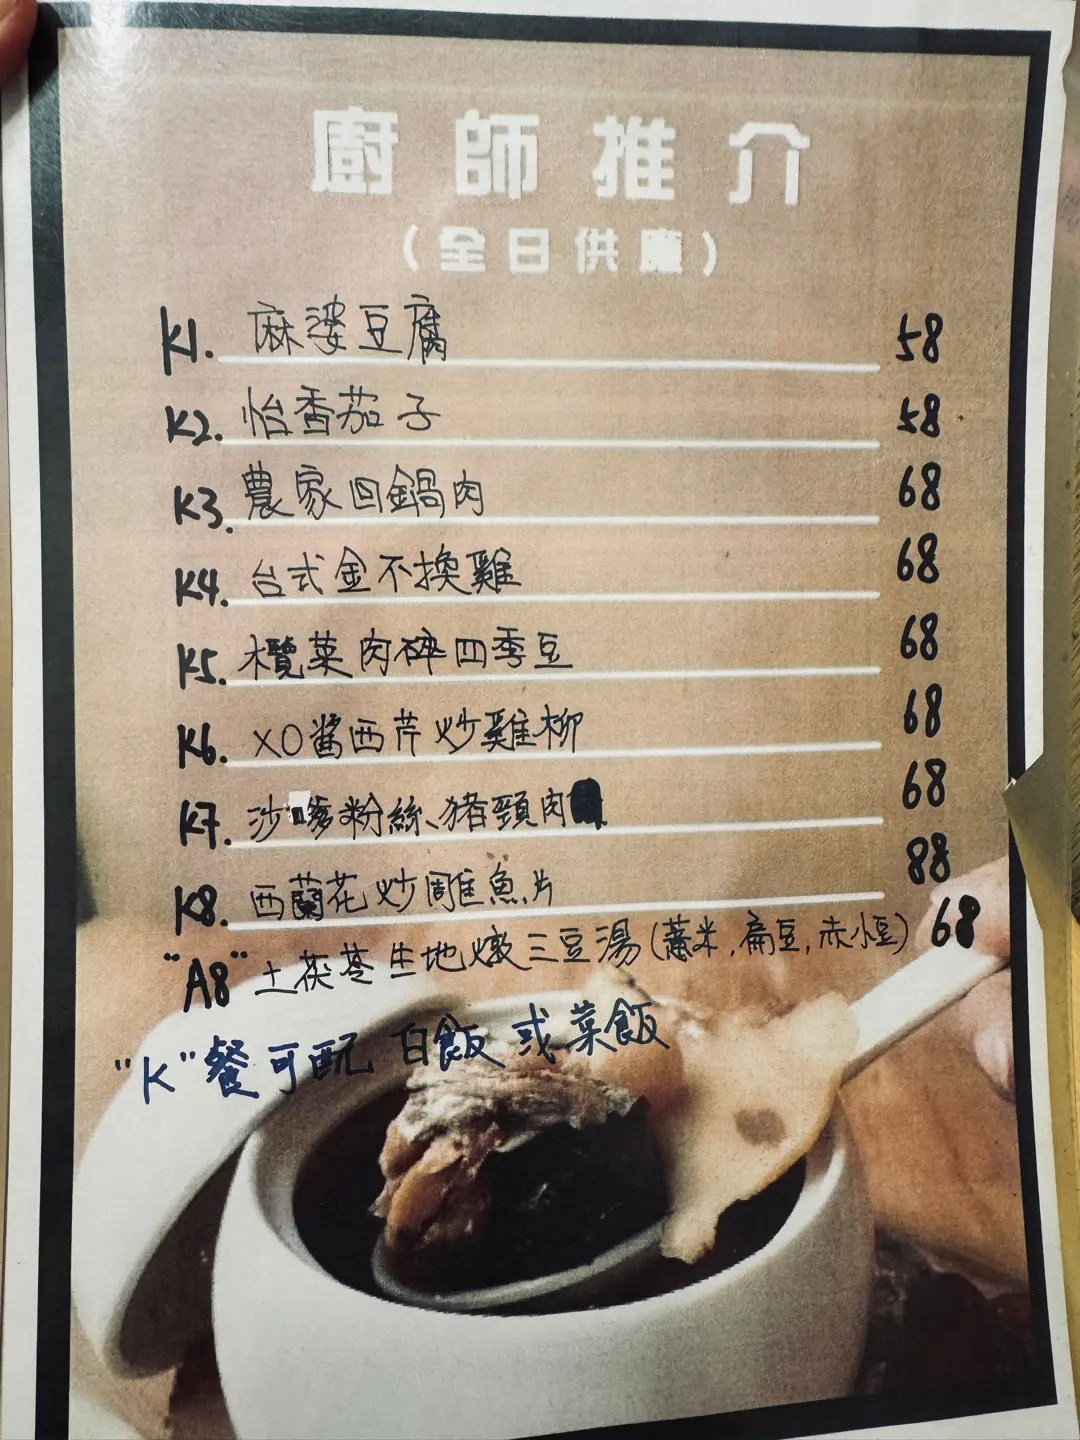 廚師推介
(全日供應)
K1. 麻婆豆腐 58
K2. 怡香茄子 58
K3. 農家回鍋肉 68
K4. 台式金不換雞 68
K5. 欖菜肉碎四季豆 68
K6. XO醬西芹炒雞柳 68
K7. 沙嗲粉絲、豬頸肉 68
K8. 西蘭花炒雕魚片 88
"A8" 土茯苓生地燉三豆湯(薏米,扁豆,赤小豆) 68
"K"餐可配 白飯 或 菜飯